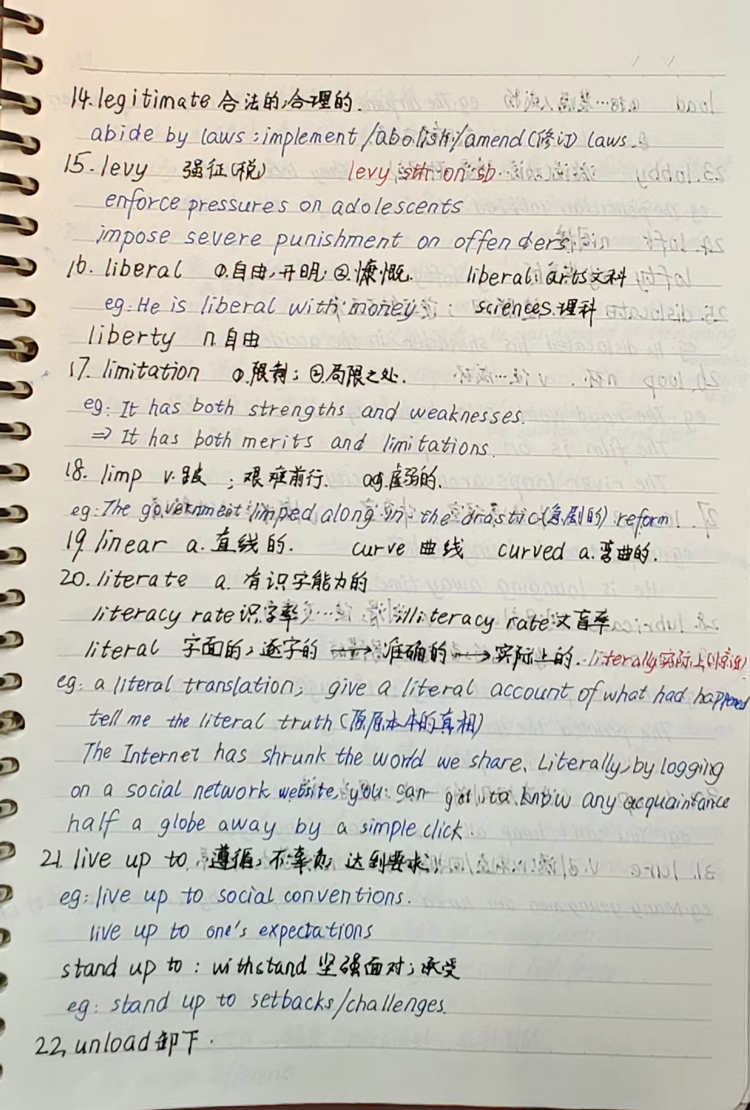 14. legitimate 合法的,合理的.
abide by laws : implement /abolish/amend(修订) laws.
15. levy 强征(税) levy sth on sb
enforce pressures on adolescents
impose severe punishment on offenders.
16. liberal ①.自由,开明; ②.慷慨. liberal arts文科
eg: He is liberal with money; sciences.理科
liberty n.自由
17. limitation ①.限制; ②局限之处.
eg: It has both strengths and weaknesses.
⇒ It has both merits and limitations.
18. limp v.跛 ; 艰难前行. adj.虚弱的.
eg: The government limped along in the drastic(急剧的) reform
19 linear a.直线的. curve 曲线 curved a.弯曲的.
20. literate a. 有识字能力的
literacy rate识字率 illiteracy rate文盲率
literal 字面的,逐字的 → 准确的 → 实际上的. literally实际上
eg: a literal translation, give a literal account of what had happened
tell me the literal truth (原原本本的真相)
The Internet has shrunk the world we share. Literally, by logging
on a social network website, you can get to know any acquaintance
half a globe away by a simple click.
21. live up to 遵循, 不辜负, 达到要求,
eg: live up to social conventions.
live up to one's expectations
stand up to : withstand 坚强面对; 承受
eg: stand up to setbacks/challenges.
22, unload卸下.